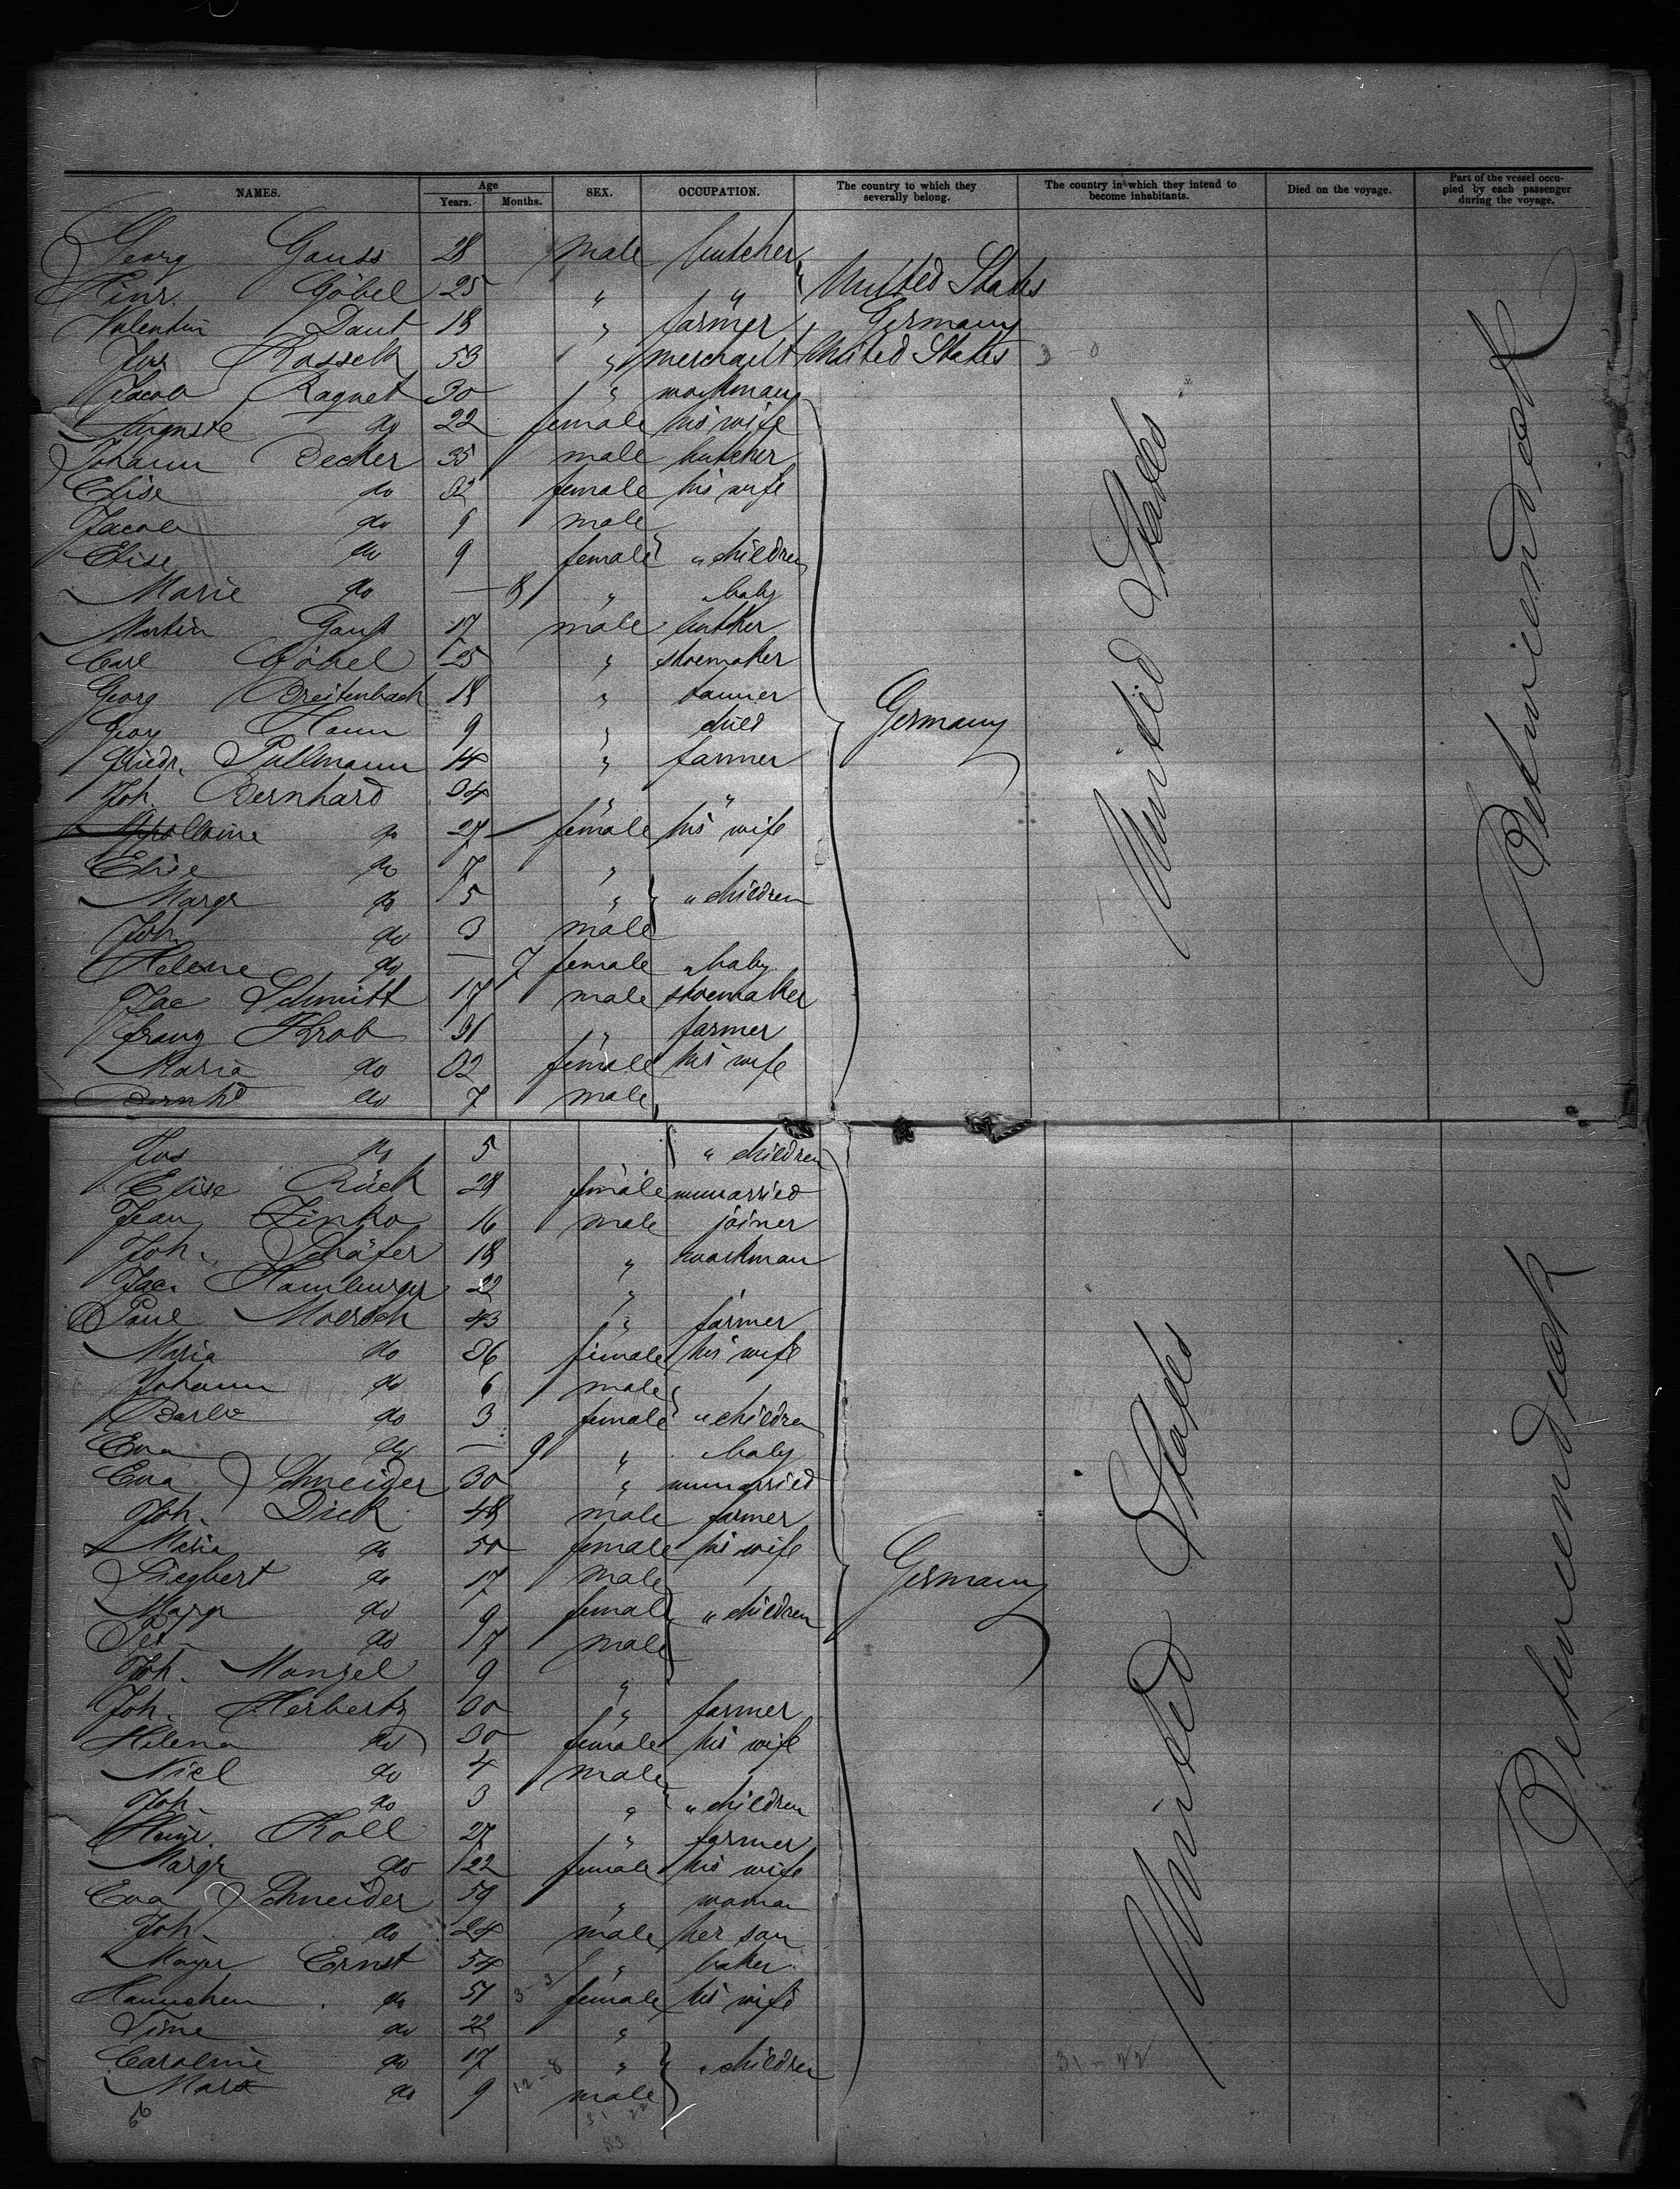 NAMES. Age Years. Months. SEX. OCCUPATION. The country to which they severally belong. The country in which they intend to become inhabitants. Died on the voyage. Part of the vessel occupied by each passenger during the voyage.
Georg Gauss 28 male butcher
Hinr. Göbel 25 " " United States
Valentin Daut 18 " farmer Germany
Jos 53 " merchant United States 3-0
Jacob Ragnet 30 " workman
Auguste do 22 female his wife
Johann Decker 35 male butcher
Elise do 32 female his wife
Jacob do 9 male
Elise do 9 female " children
Marie do — 8 " " baby
Martin Gauß 17 male butcher
Carl Göbel 25 " shoemaker
Georg Breitenbach 18 " tanner
Georg Hann 9 " child Germany
Friedr. Pullmann 14 " farmer
Joh. Bernhard 34 " "
Apollonie do 27 female his wife
Elise do 7 "
Margr do 5 " " children
Joh. do 3 male
Helene do — 7 female " baby
Jac Schmitt 17 male shoemaker
Franz Krob 31 " farmer
Maria do 32 female his wife
Bernhd do 7 male
United States
Betwiendeck
Jos do 5 " children
Elise Rück 28 female unmarried
Jean Zinko 16 male joiner
Joh. Schäfer 18 " workman
Jac. Hamburger 22 " "
Paul Moersch 43 " farmer
Maria do 36 female his wife
Johann do 6 male
Barb do 3 female " children
Eva do — 9 " baby
Eva Schneider 30 " unmarried
Joh. Dick 48 male farmer
Maria do 50 female his wife
Siegbert do 17 male Germany
Margr do 9 female " children
Pet. do 17 male
Joh. Mangel 9 "
Joh. Herbertz 30 " farmer
Helena do 30 female his wife
Nicl do 4 male
Joh. do 3 " " children
Heinr. Koll 27 " farmer
Margr do 22 female his wife
Eva Schneider 59 " woman
Joh. do 24 male her son
Mayer Ernst 54 " baker
Hannchen do 51 3-3 female his wife
Tine do 22 "
Caroline do 17 12-8 " " children 31-22
Marx do 9 male
56 31 22
83
United States
Betwiendeck